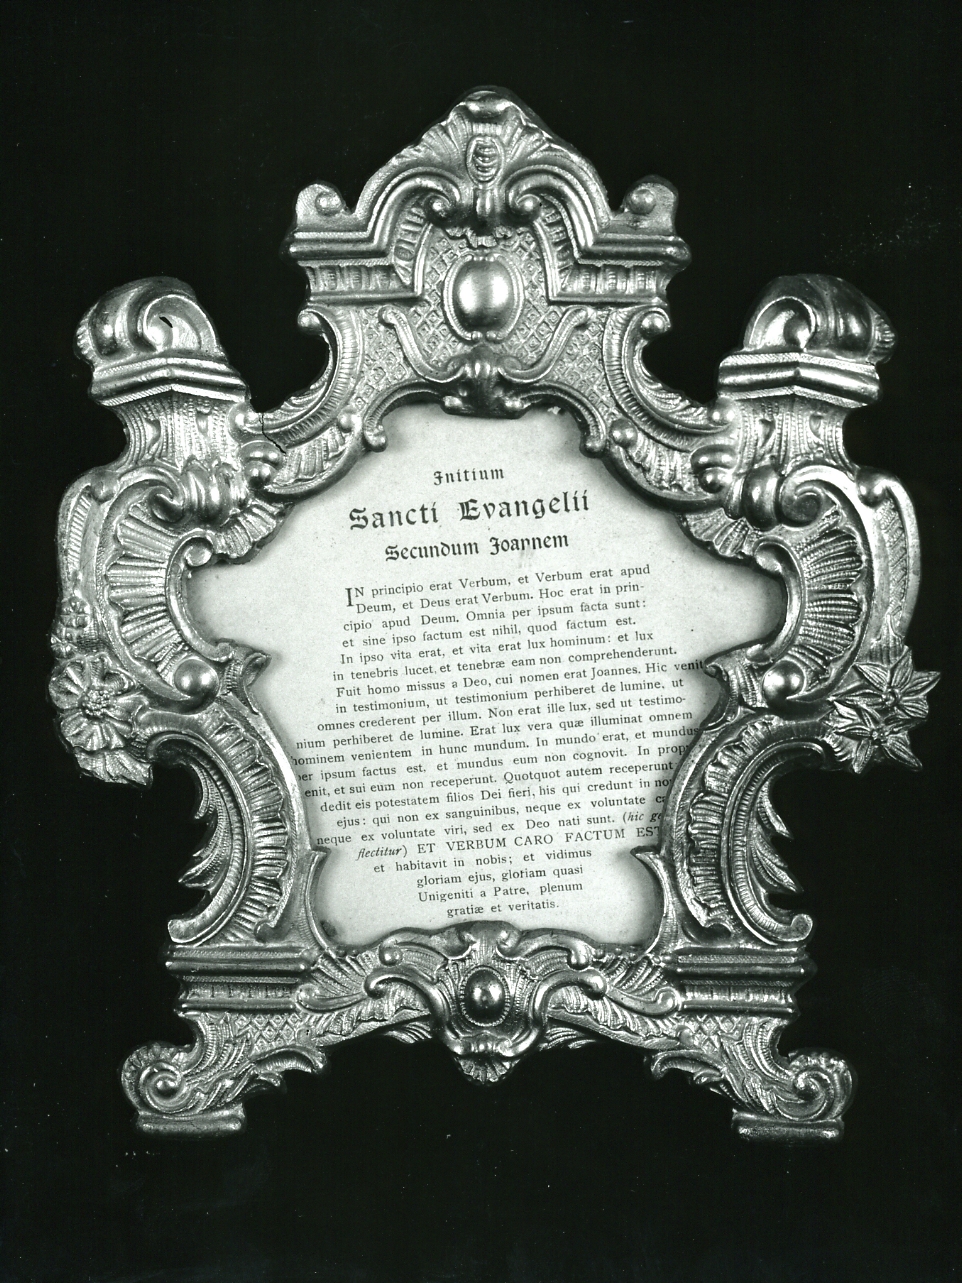 Initium
Sancti Evangelii
Secundum Joannem
IN principio erat Verbum, et Verbum erat apud
Deum, et Deus erat Verbum. Hoc erat in prin-
cipio apud Deum. Omnia per ipsum facta sunt:
et sine ipso factum est nihil, quod factum est.
In ipso vita erat, et vita erat lux hominum: et lux
in tenebris lucet, et tenebræ eam non comprehenderunt.
Fuit homo missus a Deo, cui nomen erat Joannes. Hic venit
in testimonium, ut testimonium perhiberet de lumine, ut
omnes crederent per illum. Non erat ille lux, sed ut testimo-
nium perhiberet de lumine. Erat lux vera quæ illuminat omnem
hominem venientem in hunc mundum. In mundo erat, et mundus
per ipsum factus est, et mundus eum non cognovit. In propr
enit, et sui eum non receperunt. Quotquot autem receperunt
dedit eis potestatem filios Dei fieri, his qui credunt in no
ejus: qui non ex sanguinibus, neque ex voluntate c
neque ex voluntate viri, sed ex Deo nati sunt. (hic ge
flectitur) ET VERBUM CARO FACTUM EST
et habitavit in nobis; et vidimus
gloriam ejus, gloriam quasi
Unigeniti a Patre, plenum
gratiæ et veritatis.